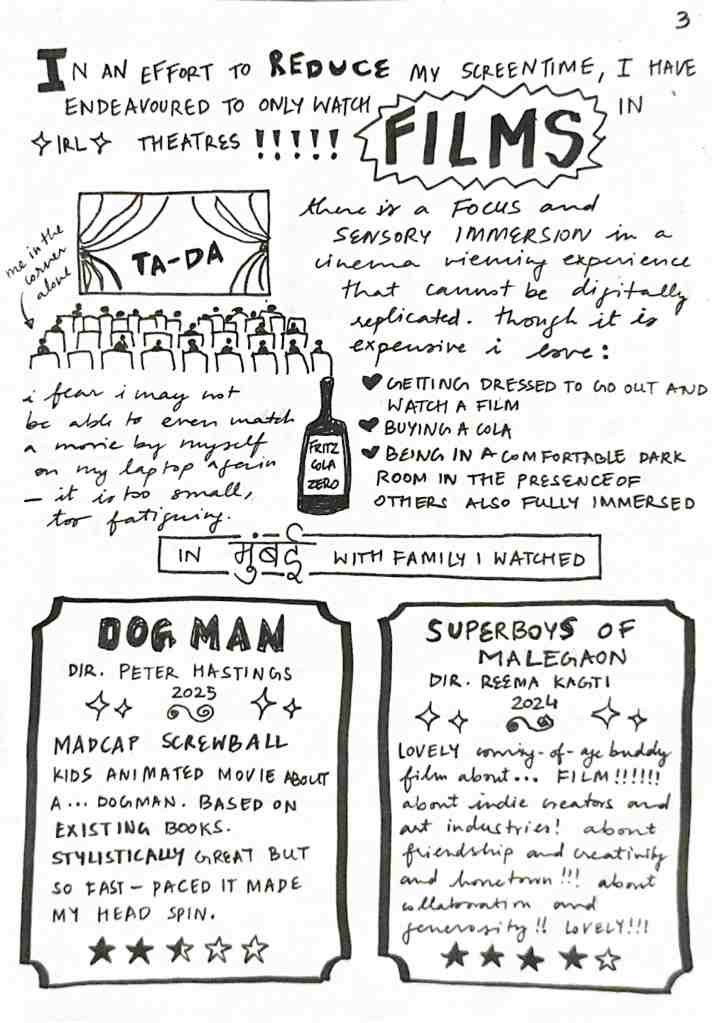 3
IN AN EFFORT TO REDUCE MY SCREENTIME, I HAVE
ENDEAVOURED TO ONLY WATCH FILMS IN
IRL THEATRES !!!!!
TA-DA
me in the
corner
alone
there is a FOCUS and
SENSORY IMMERSION in a
cinema viewing experience
that cannot be digitally
replicated. though it is
expensive i love:
GETTING DRESSED TO GO OUT AND
WATCH A FILM
BUYING A COLA
BEING IN A COMFORTABLE DARK
ROOM IN THE PRESENCE OF
OTHERS ALSO FULLY IMMERSED
i fear i may not
be able to even watch
a movie by myself
on my laptop again
- it is too small,
too fatiguing.
FRITZ
COLA
ZERO
IN मुंबई WITH FAMILY I WATCHED
DOG MAN
DIR. PETER HASTINGS
2025
MADCAP SCREWBALL
KIDS ANIMATED MOVIE ABOUT
A... DOGMAN. BASED ON
EXISTING BOOKS.
STYLISTICALLY GREAT BUT
SO FAST-PACED IT MADE
MY HEAD SPIN.
SUPERBOYS OF
MALEGAON
DIR. REEMA KAGTI
2024
LOVELY coming-of-age buddy
film about... FILM!!!!!!
about indie creators and
art industries! about
friendship and creativity
and hometown!!! about
collaboration and
generosity!! LOVELY!!!